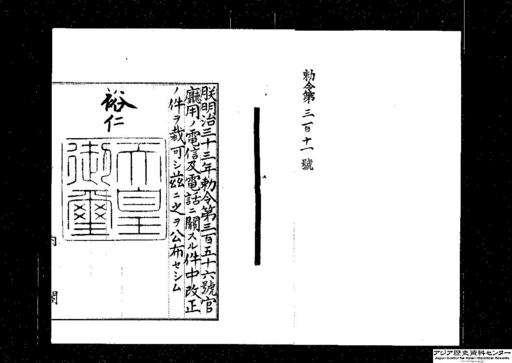 勅令第三百十一號
朕明治三十三年勅令第三百五十六號官
廳用ノ電信及電話ニ關スル件中改正
ノ件ヲ裁可シ茲ニ之ヲ公布セシム
裕仁
天皇
御璽
内閣
アジア歴史資料センター
Japan Center for Asian Historical Records